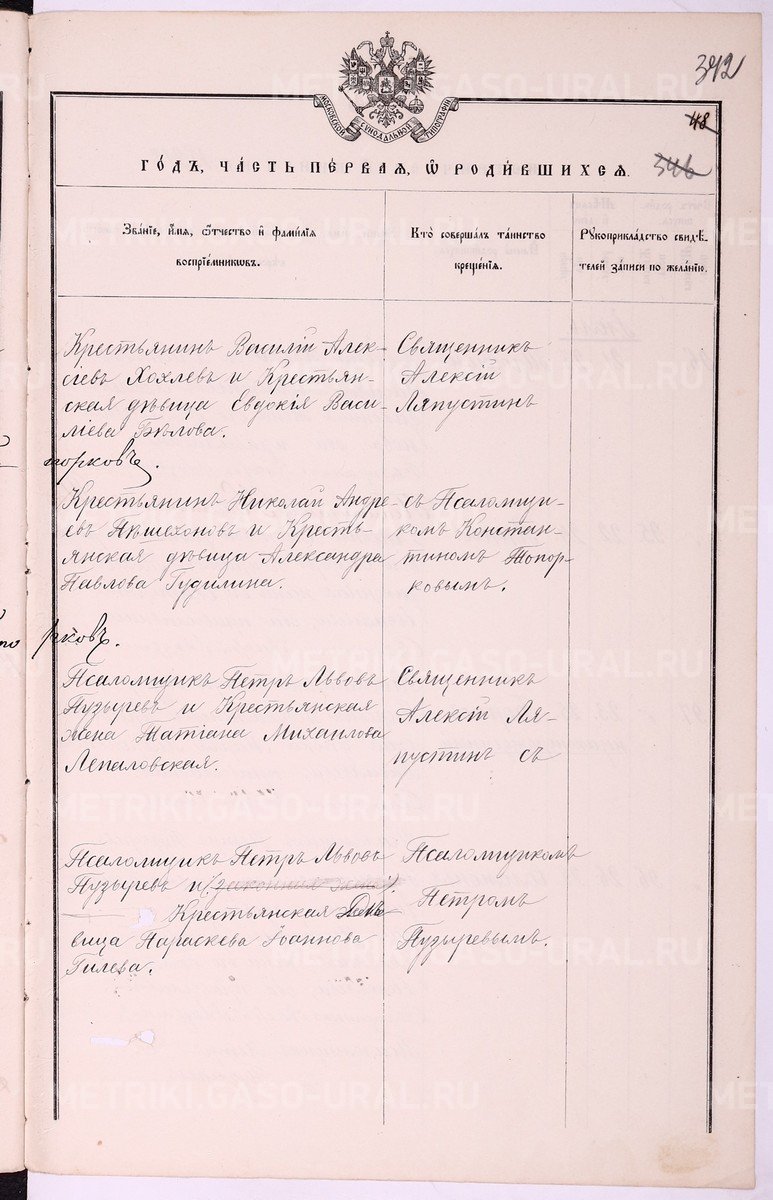 342
48
346
МОСКОВСКОЙ СѴНОДАЛЬНОЙ ТИПОГРАФІИ
ГО́ДЪ, ЧА́СТЬ ПЕ́РВАЯ, Ѡ҆ РОДИ́ВШИХСЯ.
Зва́ніе, и҆́мя, ѻ҆́тчество и҆ фами́лія
воспріе́мниковъ.
Кто̀ соверша́лъ та́инство
креще́нія.
Рꙋкоприкла́дство свидѣ́-
телей за́писи по жела́нію.
Крестьянинъ Василій Алек-
сіевъ Хохлевъ и Крестьян-
ская дѣвица Евдокія Васи-
ліева Бѣлова.
Священникъ
Алексій
Ляпустинъ
порковъ.
Крестьянинъ Николай Андре
евъ Пѣшехоновъ и Кресть-
янская дѣвица Александра
Павлова Гудилина.
съ Псаломщи-
комъ Констан-
тиномъ Топор-
ковымъ.
рковъ.
Псаломщикъ Петръ Львовъ
Пузыревъ и Крестьянская
жена Татіана Михаилова
Лепаловская.
Священникъ
Алексій Ля-
пустинъ съ
Псаломщикъ Петръ Львовъ
Пузыревъ и (законная жена)
Крестьянская Дѣ-
вица Параскева Іоаннова
Гилева.
Псаломщикомъ
Петромъ
Пузыревымъ.
METRIKI.GASO-URAL.RU